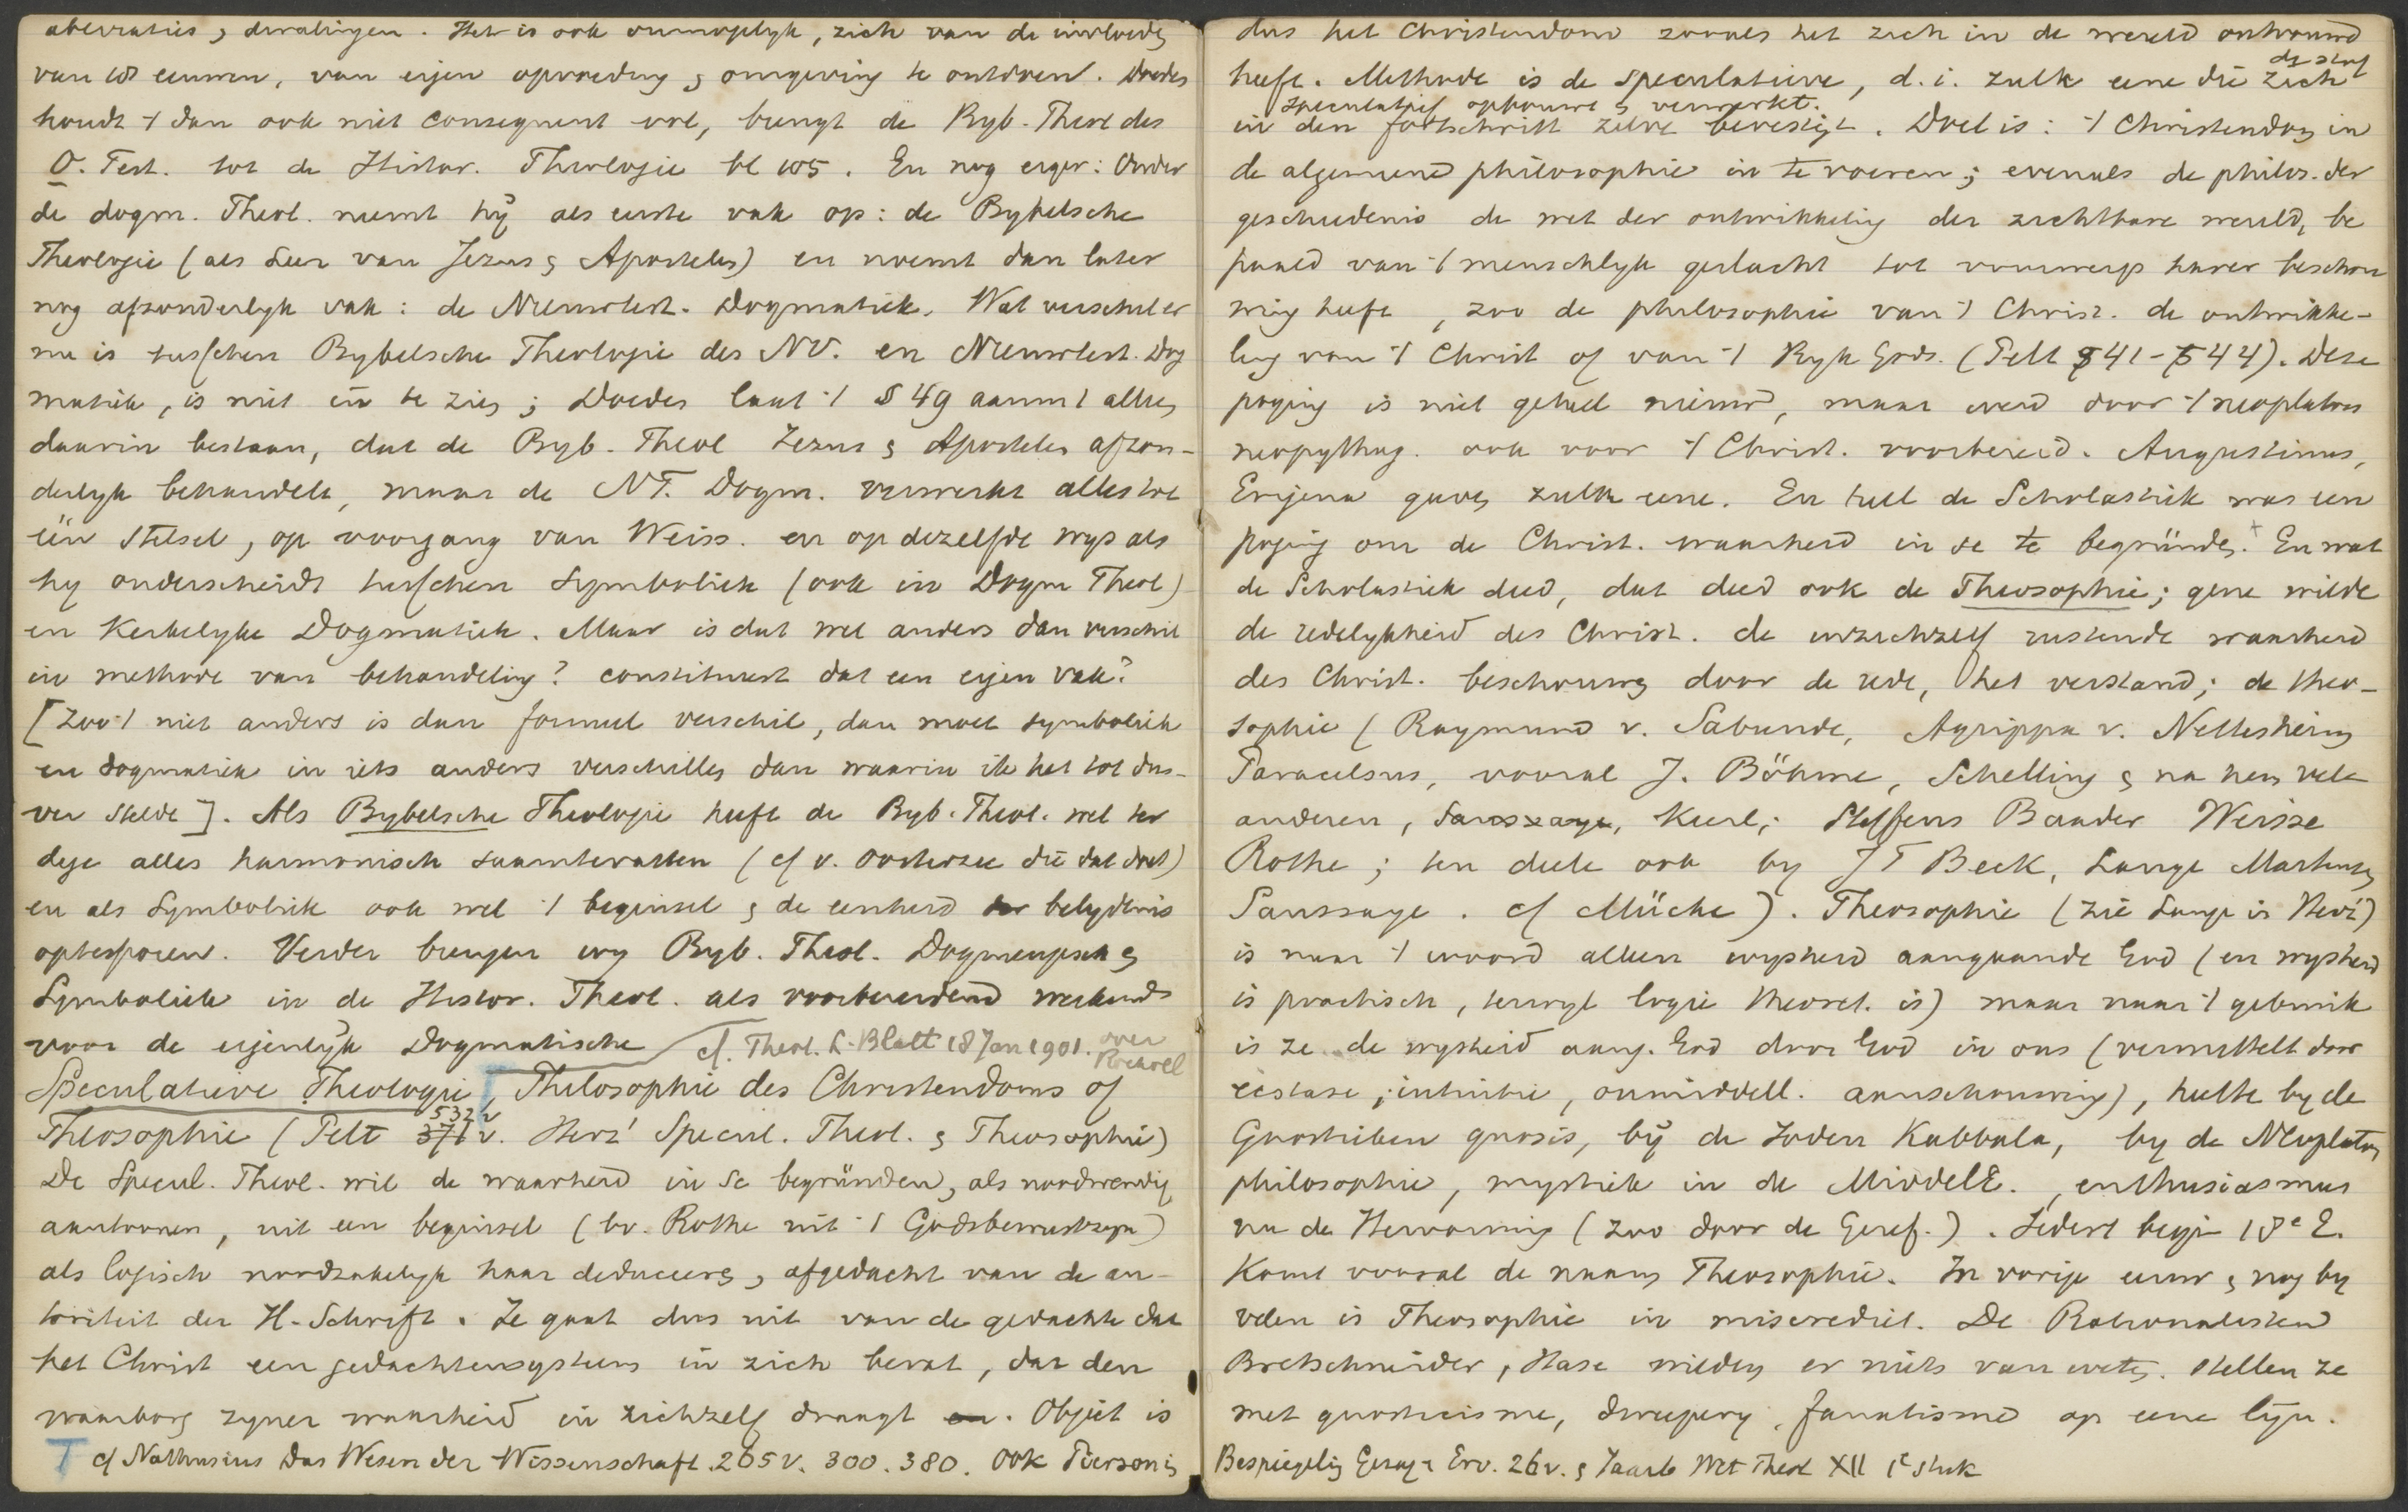 aberraties, dwalingen. Het is ook onmogelyk, zich van de invloeden
van 18 eeuwen, van eigen opvoeding & omgeving te ontdoen. Doedes
houdt 't dan ook niet consequent vol, brengt de Byb. Theol des
O. Test. tot de Histor. Theologie bl 105. En nog erger: Onder
de dogm. Theol. neemt hÿ als eerste vak op: de Bybelsche
Theologie (als Leer van Jezus & Apostelen) en noemt dan later
nog afzonderlyk vak: de Nieuwtest. Dogmatiek. Wat verschil er
nu is tusschen Bybelsche Theologie des NV. en Nieuwtest. Dog
matiek, is niet in te zien; Doedes laat 't § 49 aanm 1 alleen
daarin bestaan, dat de Byb. Theol Jezus & Apostelen afzon-
derlyk behandelt, maar de NT. Dogm. verwerkt alles tot
één Stelsel, op voorgang van Weiss. en op dezelfde wys als
hy onderscheidt tusschen Symboliek (ook in Dogm Theol)
en Kerkelyke Dogmatiek. Maar is dat wel anders dan verschil
in methode van behandeling? constitueert dat een eigen vak?
[Zoo 't niet anders is dan formeel verschil, dan moet symboliek
en dogmatiek in iets anders verschillen dan waarin ik het tot dus-
ver stelde]. Als Bybelsche Theologie heeft de Byb. Theol. wel ter
dege alles harmonisch saamtevatten (cf v. Oosterzee die dat doet)
en als Symboliek ook wel 't beginsel & de eenheid der belydenis
optesporen. Verder brengen wy Byb. Theol. Dogmengesch &
Symboliek in de Histor. Theol. als voorbereidend werkend
voor de eigenlyk Dogmatische cf. Theol. L-Blatt 18 Jan 1901. over
Speculatieve Theologie, Philosophie des Christendoms of
Theosophie (Pelt 371 532 v. Herz' Specul. Theol. & Theosophie)
De Specul. Theol. wil de waarheid in se begründen, als noodwendig
aantoonen, uit een beginsel (bv. Rothe uit 't Godsbewustzyn)
als logisch noodzakelyk haar deduceeren, afgedacht van de au-
toriteit der H. Schrift. Ze gaat dus uit van de gedachte dat
het Christ een gedachtensysteem in zich bevat, dat den
waarborg zyner waarheid in zichzelf draagt en. Object is
T cf Nathusius Das Wesen der Wissenschaft. 265 v. 300. 380. Ook Pierson in
dus het Christendom zooals het zich in de wereld ontvouwd
heeft. Methode is de speculatieve, d.i. zulk eene die zich de stof
speculatief opbouwt & verwerkt.
in den fortschritt zelve bevestigt. Doel is: 't Christendom in
de algemeene philosophie in te voeren; evenals de philos. der
geschiedenis de wet der ontwikkeling der zichtbare wereld, be
paald van 't menschlyk geslacht tot voorwerp harer beschou
wing heeft, zoo de philosophie van 't Christ. de ontwikke-
ling van 't Christ of van 't Ryk Gods. (Pelt 541-544). Deze
poging is niet geheel nieuw, maar werd door 't neoplaton
neopythag. ook voor 't Christ. voorbereid. Augustinus,
Erigena gaven zulk eene. En heel de Scholastiek was een
poging om de Christ. waarheid in se te begründen. + En wat
de Scholastiek deed, dat deed ook de Theosophie; gene wilde
de redelykheid des Christ. de inzichzelf rustende waarheid
des Christ. beschouwen door de rede, het verstand; de theo-
sophie (Raymund v. Sabunde, Agrippa v. Nettesheim
Paracelsus, vooral J. Böhme, Schelling & na hem vele
anderen, Keerl; Steffens Baader Weisse
Rothe; ten deele ook by J T Beck, Lange Martensen
Saussaye. cf Mücke). Theosophie (zie Lange in Herz')
is naar 't woord alleen wysheid aangaande God (en wysheid
is practisch, terwyl logie theoret. is) maar naar 't gebruik
is ze de wysheid aang. God door God in ons (vermittelt door
ecstase, intuitie, onmiddell. aanschouwing), heette by de
Gnostieken gnosis, bÿ de Joden Kabbala, by de Neoplaton
philosophie, mystiek in de MiddelE., enthusiasmus
na de Hervorming (zoo door de Geref.). Sedert begin 18e E.
Komt vooral de naam Theosophie. In vorige eeuw & nog by
velen is Theosophie in miscrediet. De Rationalisten
Bretschneider, Hase wilden er niets van weten. Stellen ze
met gnosticisme, dweepery, fanatisme op eene lÿn.
Bespiegeling Gezag & Erv. 26v. & Jaarb Wet Theol XII 1e stuk